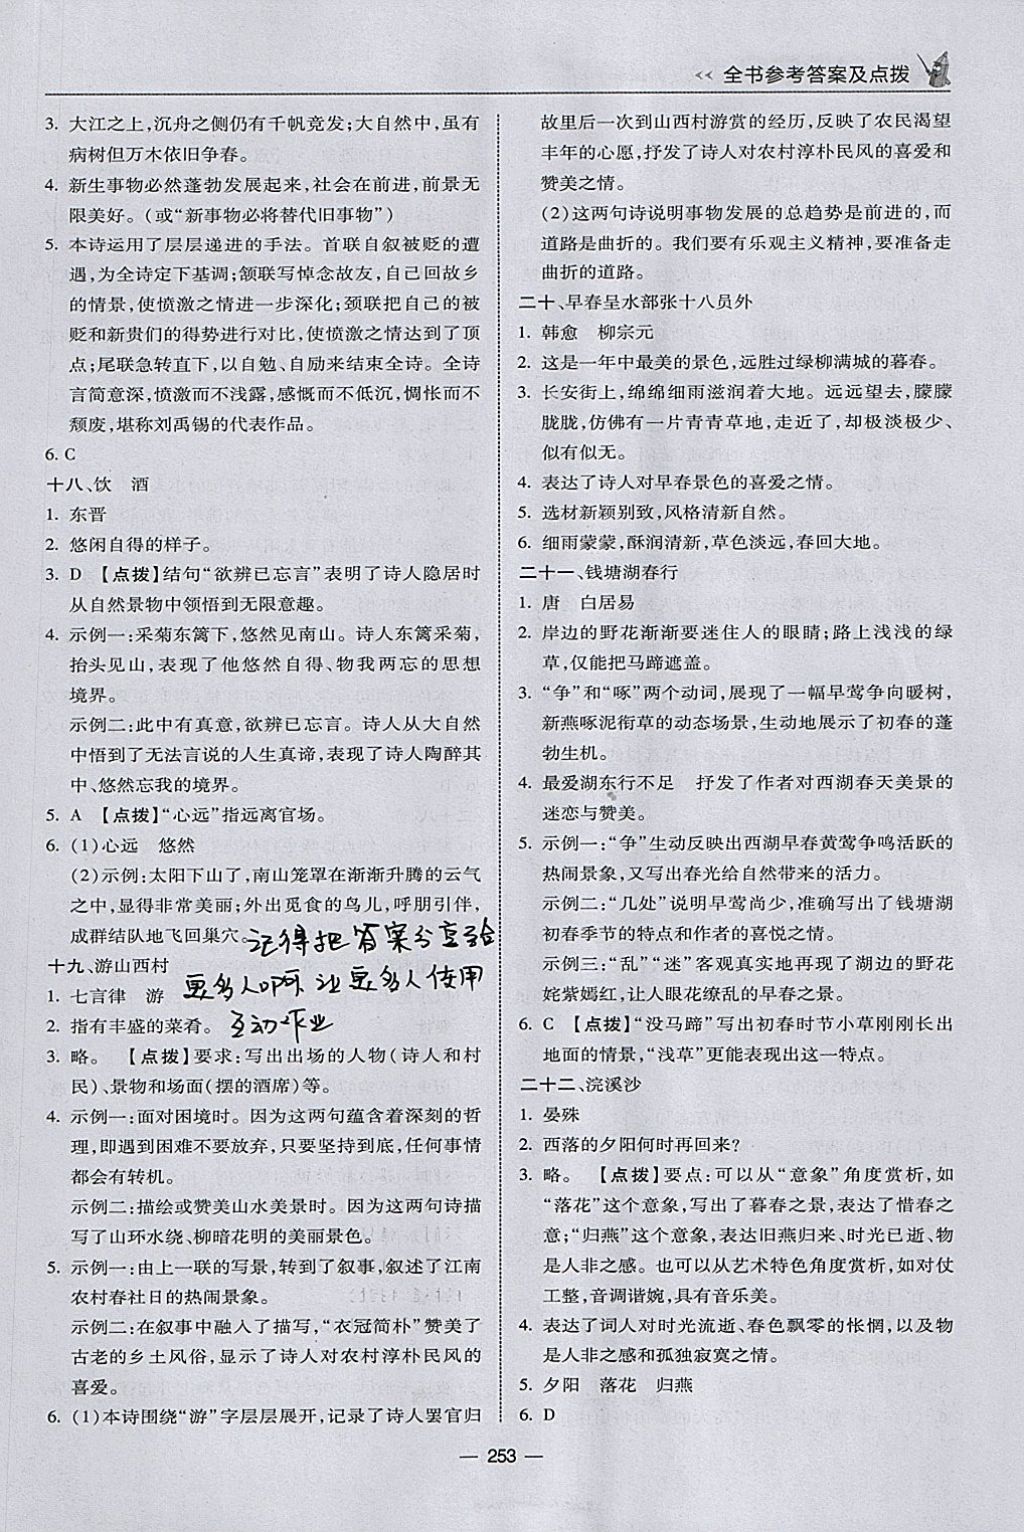 << 全书参考答案及点拨
3. 大江之上,沉舟之侧仍有千帆竞发;大自然中,虽有
病树但万木依旧争春。
4. 新生事物必然蓬勃发展起来,社会在前进,前景无
限美好。(或“新事物必将替代旧事物”)
5. 本诗运用了层层递进的手法。首联自叙被贬的遭
遇,为全诗定下基调;颔联写悼念故友,自己回故乡
的情景,使愤激之情进一步深化;颈联把自己的被
贬和新贵们的得势进行对比,使愤激之情达到了顶
点;尾联急转直下,以自勉、自励来结束全诗。全诗
言简意深,愤激而不浅露,感慨而不低沉,惆怅而不
颓废,堪称刘禹锡的代表作品。
6. C
十八、饮 酒
1. 东晋
2. 悠闲自得的样子。
3. D 【点拨】结句“欲辨已忘言”表明了诗人隐居时
从自然景物中领悟到无限意趣。
4. 示例一:采菊东篱下,悠然见南山。诗人东篱采菊,
抬头见山,表现了他悠然自得、物我两忘的思想
境界。
示例二:此中有真意,欲辨已忘言。诗人从大自然
中悟到了无法言说的人生真谛,表现了诗人陶醉其
中、悠然忘我的境界。
5. A 【点拨】“心远”指远离官场。
6. (1)心远 悠然
(2)示例:太阳下山了,南山笼罩在渐渐升腾的云气
之中,显得非常美丽;外出觅食的鸟儿,呼朋引伴,
成群结队地飞回巢穴。
记得把答案分享给
更多人啊 让更多人使用
互动作业
十九、游山西村
1. 七言律 游
2. 指有丰盛的菜肴。
3. 略。 【点拨】要求:写出出场的人物(诗人和村
民)、景物和场面(摆的酒席)等。
4. 示例一:面对困境时。因为这两句蕴含着深刻的哲
理,即遇到困难不要放弃,只要坚持到底,任何事情
都会有转机。
示例二:描绘或赞美山水美景时。因为这两句诗描
写了山环水绕、柳暗花明的美丽景色。
5. 示例一:由上一联的写景,转到了叙事,叙述了江南
农村春社日的热闹景象。
示例二:在叙事中融入了描写,“衣冠简朴”赞美了
古老的乡土风俗,显示了诗人对农村淳朴民风的
喜爱。
6. (1)本诗围绕“游”字层层展开,记录了诗人罢官归
故里后一次到山西村游赏的经历,反映了农民渴望
丰年的心愿,抒发了诗人对农村淳朴民风的喜爱和
赞美之情。
(2)这两句诗说明事物发展的总趋势是前进的,而
道路是曲折的。我们要有乐观主义精神,要准备走
曲折的道路。
二十、早春呈水部张十八员外
1. 韩愈 柳宗元
2. 这是一年中最美的景色,远胜过绿柳满城的暮春。
3. 长安街上,绵绵细雨滋润着大地。远远望去,朦朦
胧胧,仿佛有一片青青草地,走近了,却极淡极少、
似有似无。
4. 表达了诗人对早春景色的喜爱之情。
5. 选材新颖别致,风格清新自然。
6. 细雨蒙蒙,酥润清新,草色淡远,春回大地。
二十一、钱塘湖春行
1. 唐 白居易
2. 岸边的野花渐渐要迷住人的眼睛;路上浅浅的绿
草,仅能把马蹄遮盖。
3. “争”和“啄”两个动词,展现了一幅早莺争向暖树,
新燕啄泥衔草的动态场景,生动地展示了初春的蓬
勃生机。
4. 最爱湖东行不足 抒发了作者对西湖春天美景的
迷恋与赞美。
5. 示例一:“争”生动反映出西湖早春黄莺争鸣活跃的
热闹景象,又写出春光给自然带来的活力。
示例二:“几处”说明早莺尚少,准确写出了钱塘湖
初春季节的特点和作者的喜悦之情。
示例三:“乱”“迷”客观真实地再现了湖边的野花
姹紫嫣红,让人眼花缭乱的早春之景。
6. C 【点拨】“没马蹄”写出初春时节小草刚刚长出
地面的情景,“浅草”更能表现出这一特点。
二十二、浣溪沙
1. 晏殊
2. 西落的夕阳何时再回来?
3. 略。 【点拨】要点:可以从“意象”角度赏析,如
“落花”这个意象,写出了暮春之景,表达了惜春之
意;“归燕”这个意象,表达旧燕归来,时光已逝、物
是人非之感。也可以从艺术特色角度赏析,如对仗
工整,音调谐婉,具有音乐美。
4. 表达了词人对时光流逝、春色飘零的怅惘,以及物
是人非之感和孤独寂寞之情。
5. 夕阳 落花 归燕
6. D
— 253 —